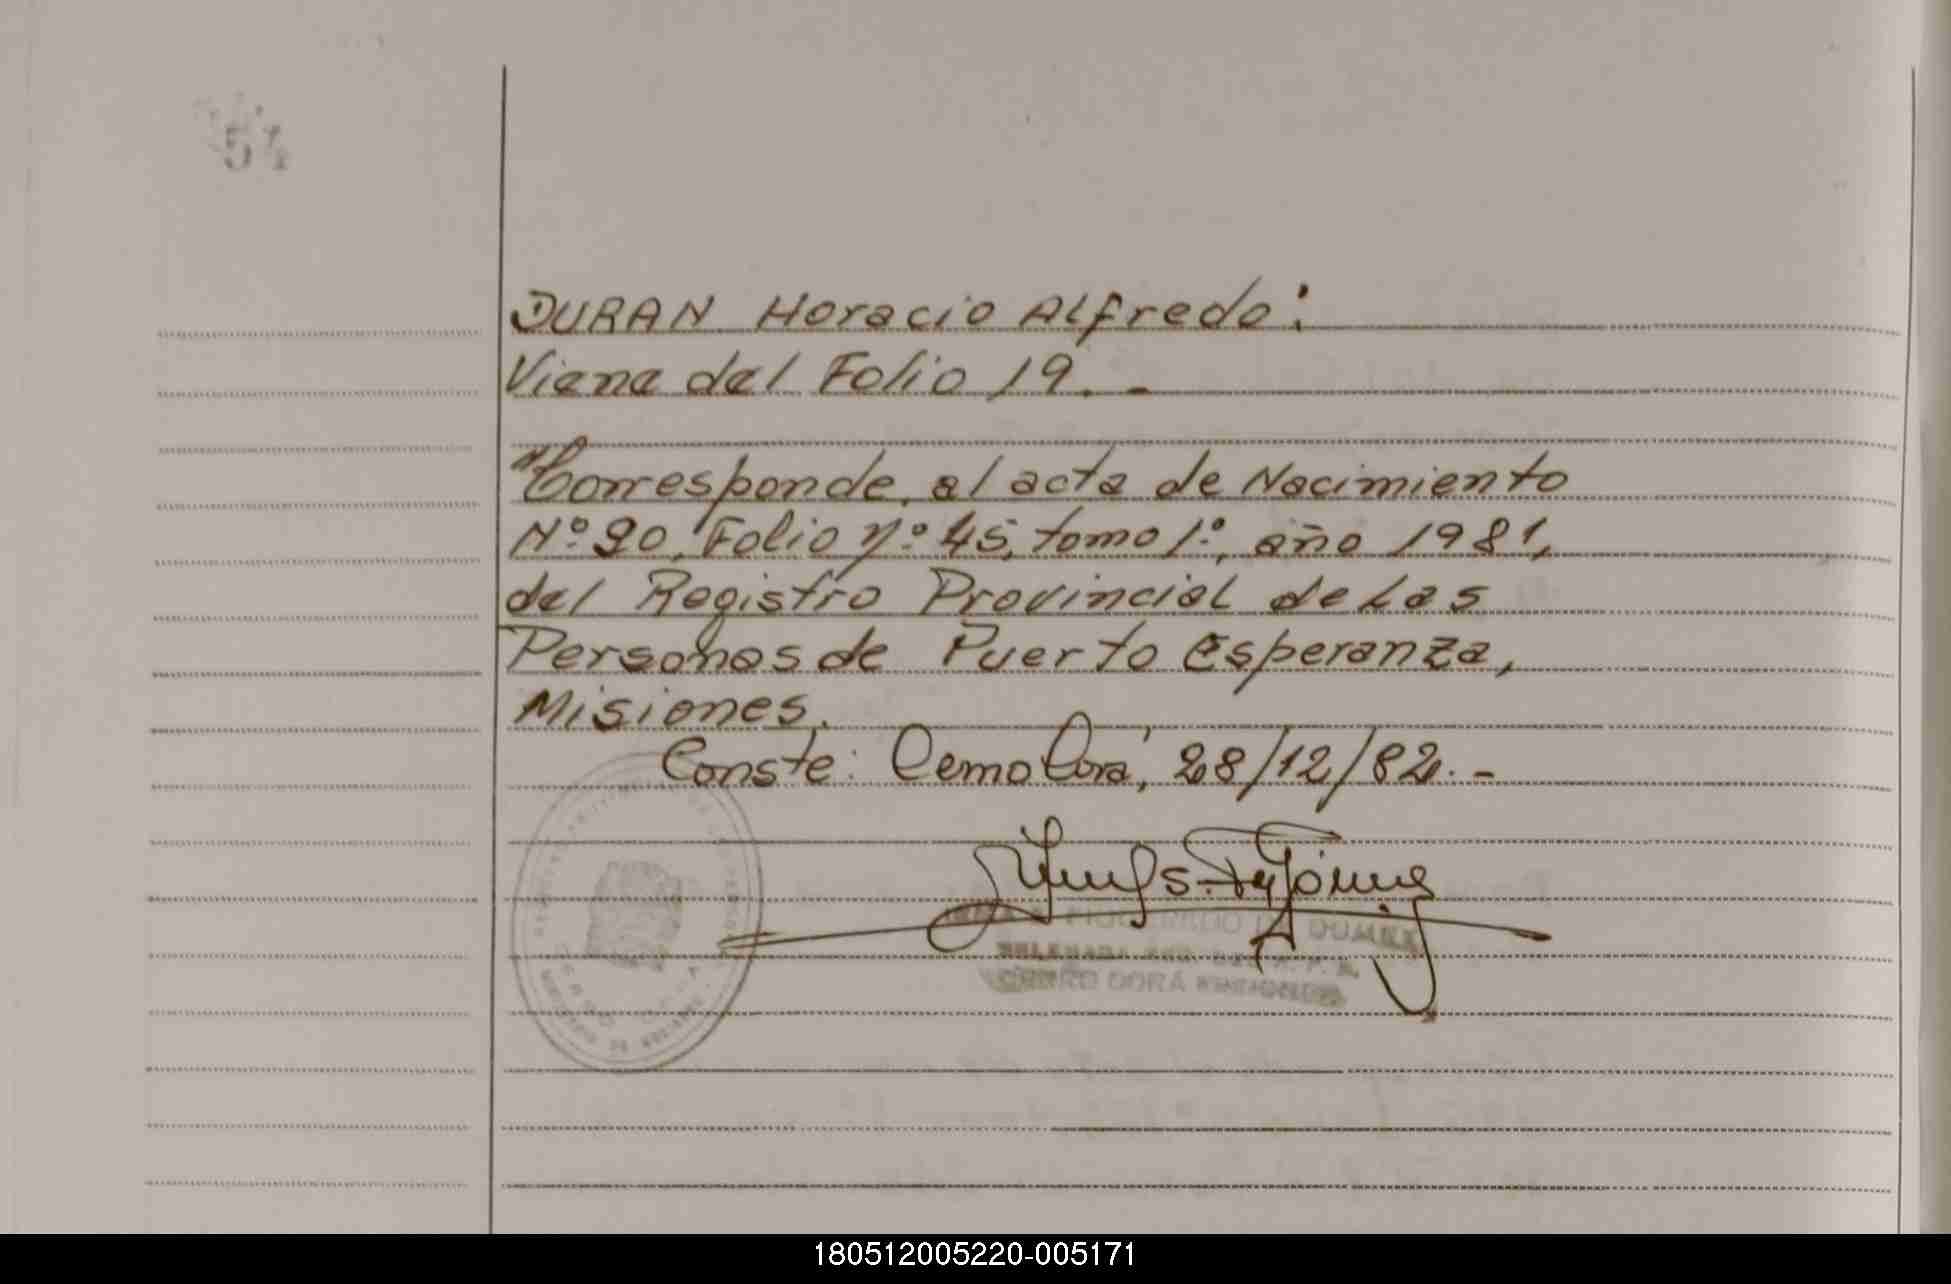 54
DURAN Horacio Alfredo:
Viene del Folio 19.-
"Corresponde, al acta de Nacimiento
Nº 90, Folio nº 45, tomo 1º, año 1981,
del Registro Provincial de Las
Personas de Puerto Esperanza,
Misiones.
Conste: Cerro Corá, 28/12/82.-
CERRO CORÁ MISIONES
180512005220-005171